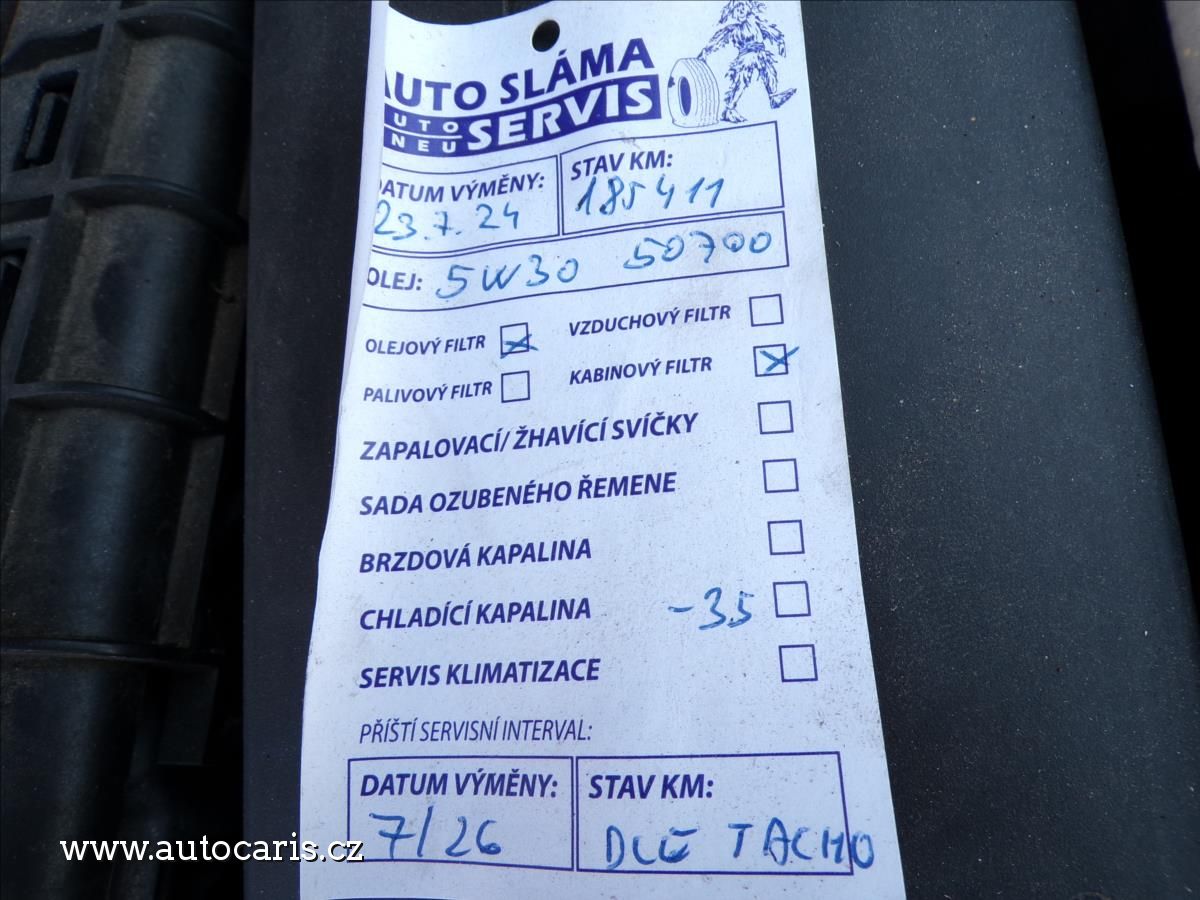 AUTO SLÁMA
AUTO
PNEU SERVIS
DATUM VÝMĚNY: STAV KM:
23.7.24 185411
OLEJ: 5W30 50700
OLEJOVÝ FILTR VZDUCHOVÝ FILTR
PALIVOVÝ FILTR KABINOVÝ FILTR
ZAPALOVACÍ/ ŽHAVÍCÍ SVÍČKY
SADA OZUBENÉHO ŘEMENE
BRZDOVÁ KAPALINA
CHLADÍCÍ KAPALINA -35
SERVIS KLIMATIZACE
PŘÍŠTÍ SERVISNÍ INTERVAL:
DATUM VÝMĚNY: STAV KM:
7/26 DLE TACHO
www.autocaris.cz